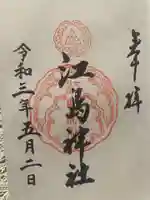 奉拝
江島神社
令和三年五月二日